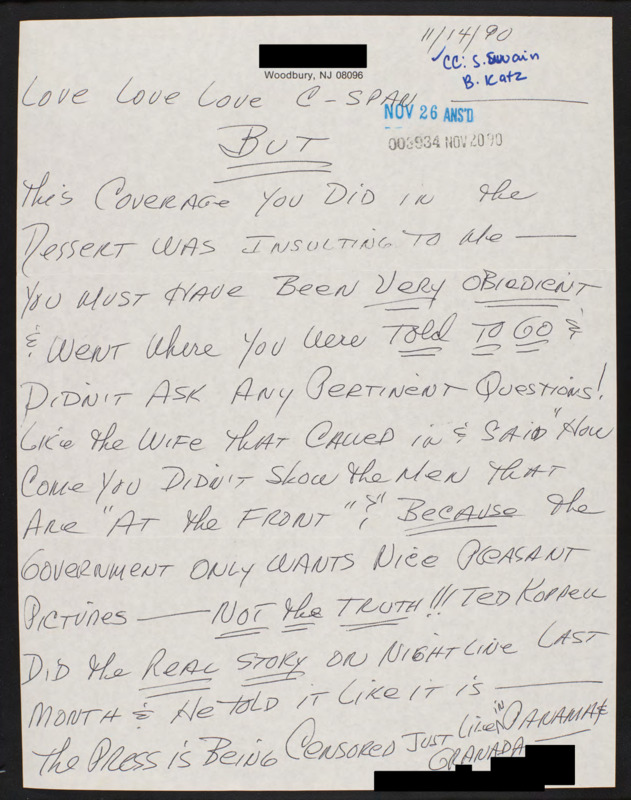 11/14/90
✓CC: S. Swain
B. Katz
Woodbury, NJ 08096
LOVE LOVE LOVE C-SPAN ——
NOV 26 ANS'D
003934 NOV 20 90
BUT
This COVERAGE YOU DID IN the
DESSERT WAS INSULTING TO Me —
YOU MUST HAVE BEEN VERY OBIEDIENT
& WENT Where YOU Were TOld TO GO &
DIDN'T ASK ANY PERTINENT QUESTIONS!
LIKE the WIFE THAT CALLED IN & SAID "HOW
COME YOU DIDN'T Show the MEN THAT
ARE "AT the FRONT" "&" BECAUSE the
GOVERNMENT ONLY WANTS NICE PLEASANT
PICTURES — NOT the TRUTH!!! TED KOPPELL
DID the REAL STORY ON NIGHTLINE LAST
MONTH & HE TOLD IT LIKE IT IS ——
the PRESS IS BEING CENSORED JUST LIKE IN PANAMA &
GRANADA —